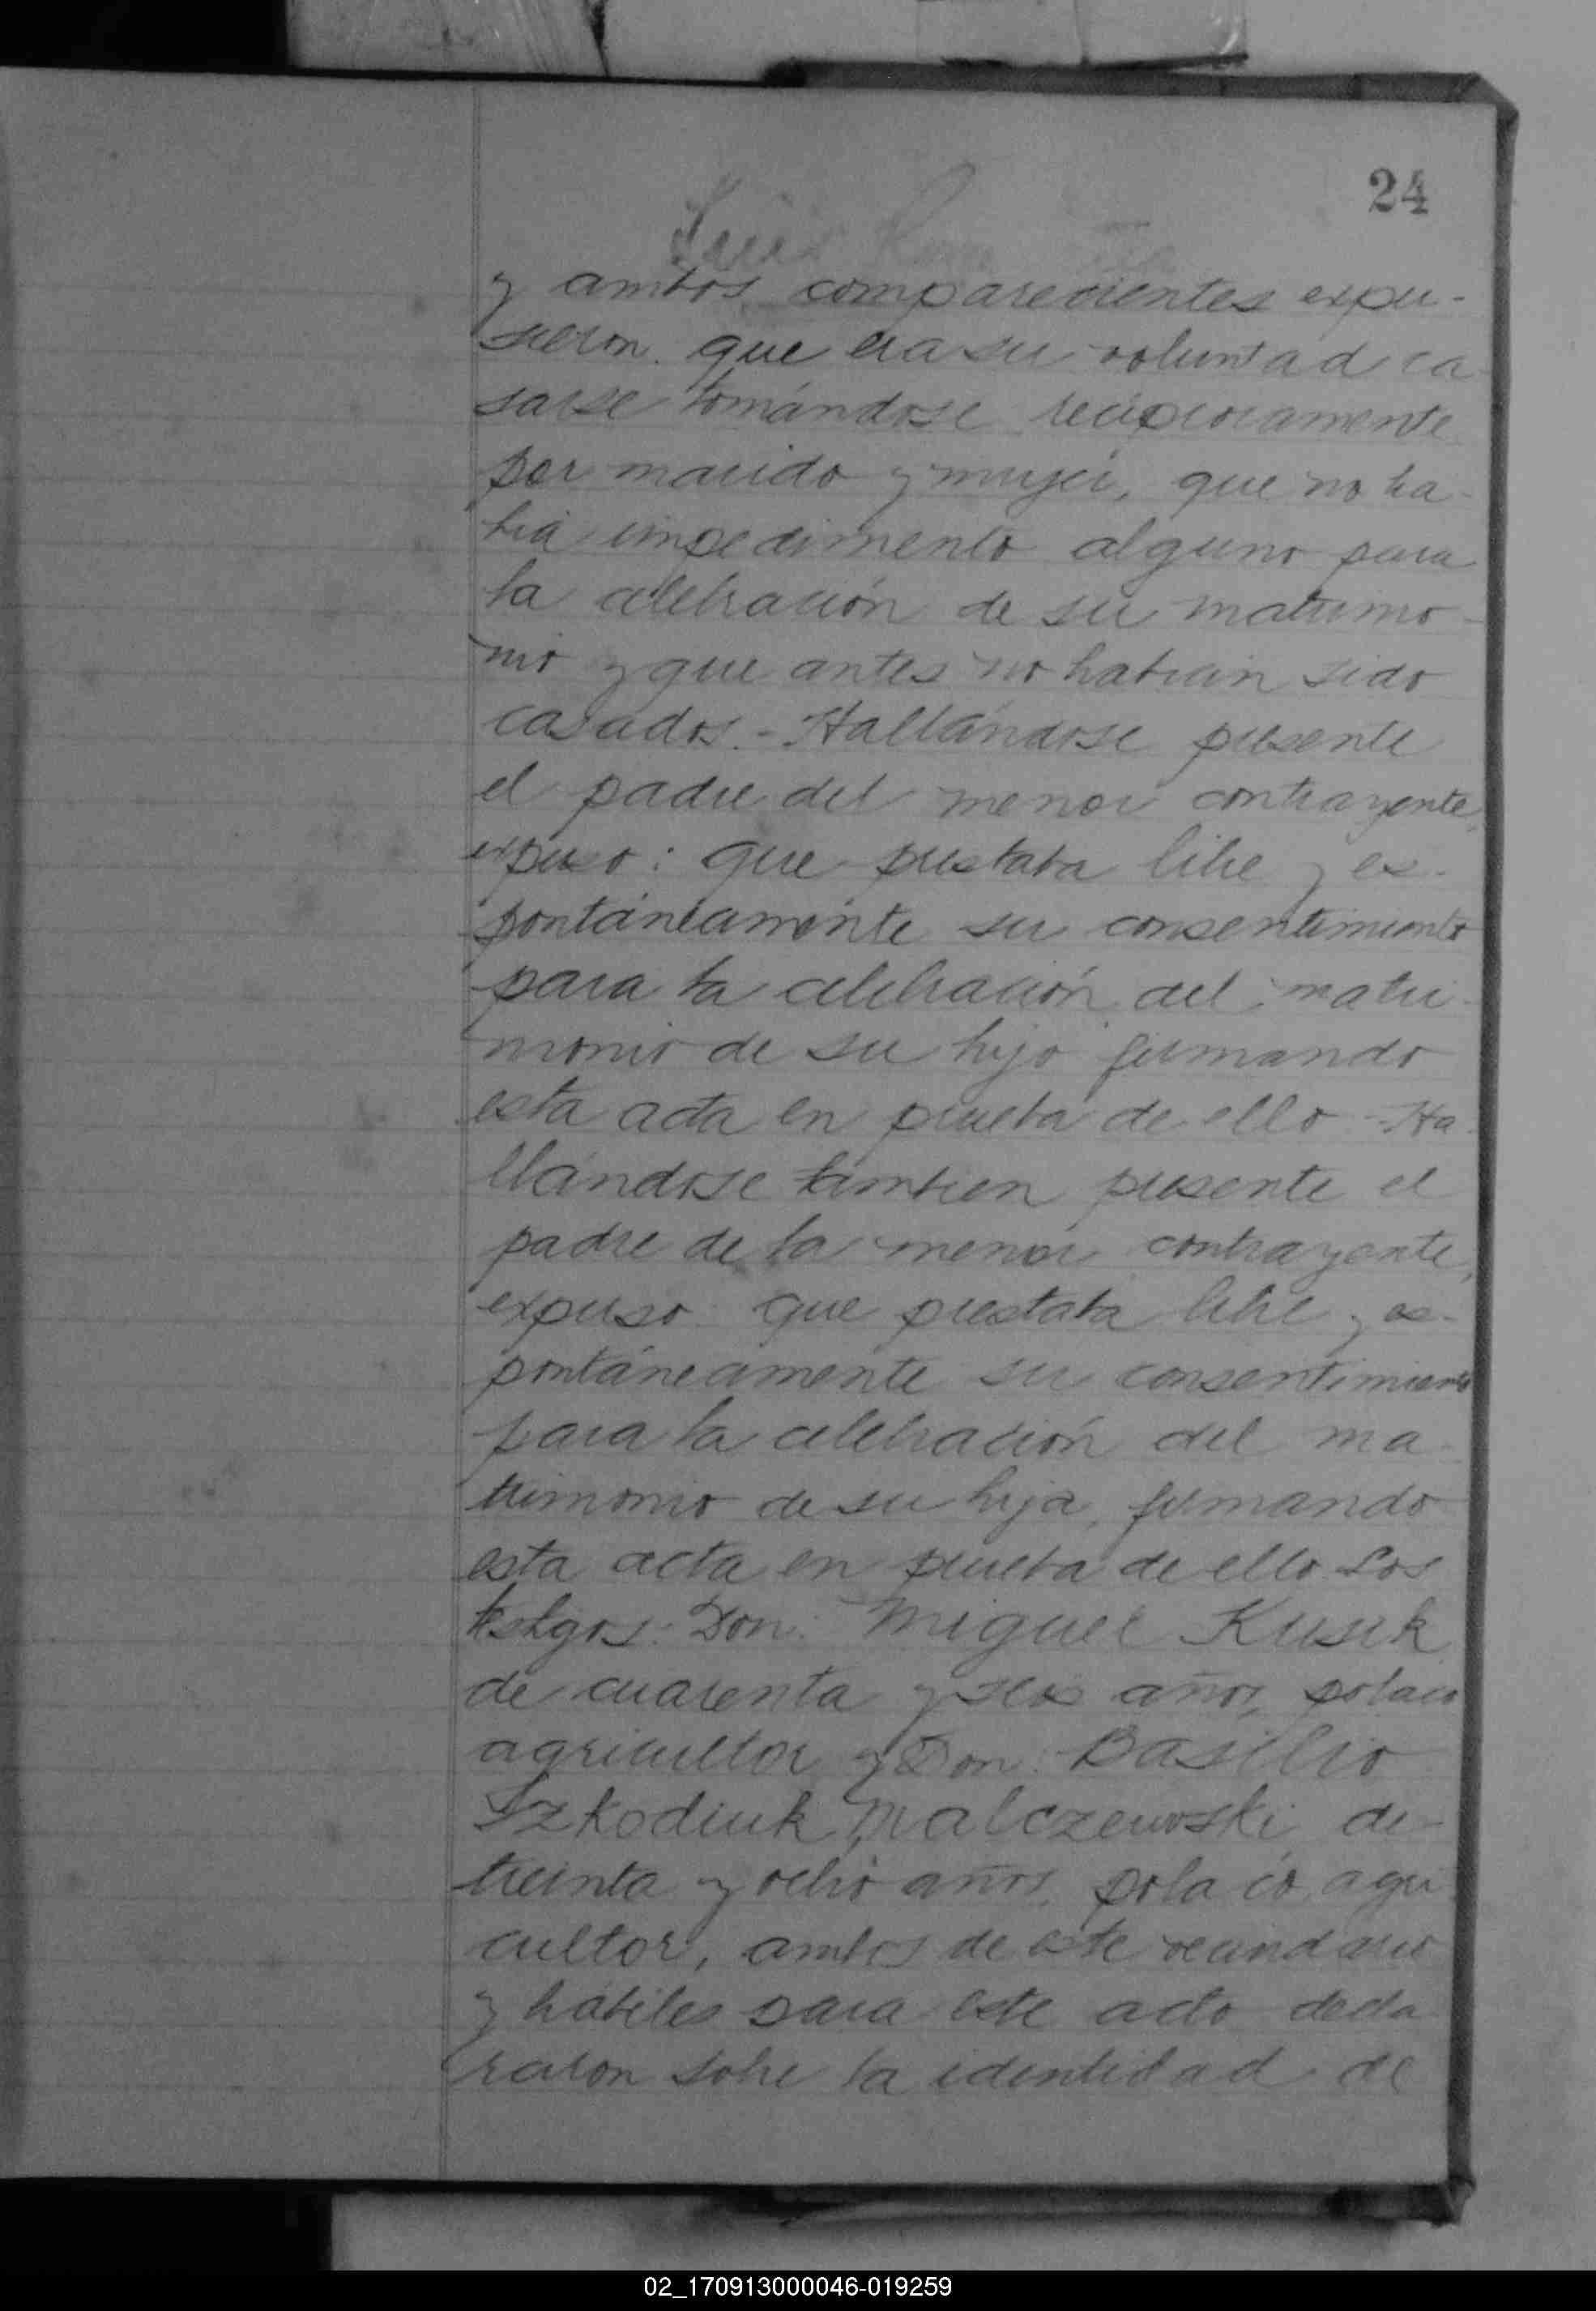 24
y ambos comparecientes expu-
sieron que era su voluntad ca-
sarse tomándose recíprocamente
por marido y mujer, que no ha-
bía impedimento alguno para
la celebración de su matrimo-
nio y que antes no habían sido
casados.- Hallándose presente
el padre del menor contrayente,
expuso: que prestaba libre y es-
pontáneamente su consentimiento
para la celebración del matri-
monio de su hijo firmando
esta acta en prueba de ello - Ha-
llándose tambien presente el
padre de la menor contrayente,
expuso que prestaba libre y es-
pontáneamente su consentimiento
para la celebración del ma-
trimonio de su hija, firmando
esta acta en prueba de ello Los
testigos: Don: Miguel Kusik
de cuarenta y seis años, polaco
agricultor y Don: Basilio
Szkodiuk Malczewski de
treinta y ocho años, polaco, agri
cultor, ambos de este vecindario
y hábiles para este acto decla
raron sobre la identidad de
02_170913000046-019259